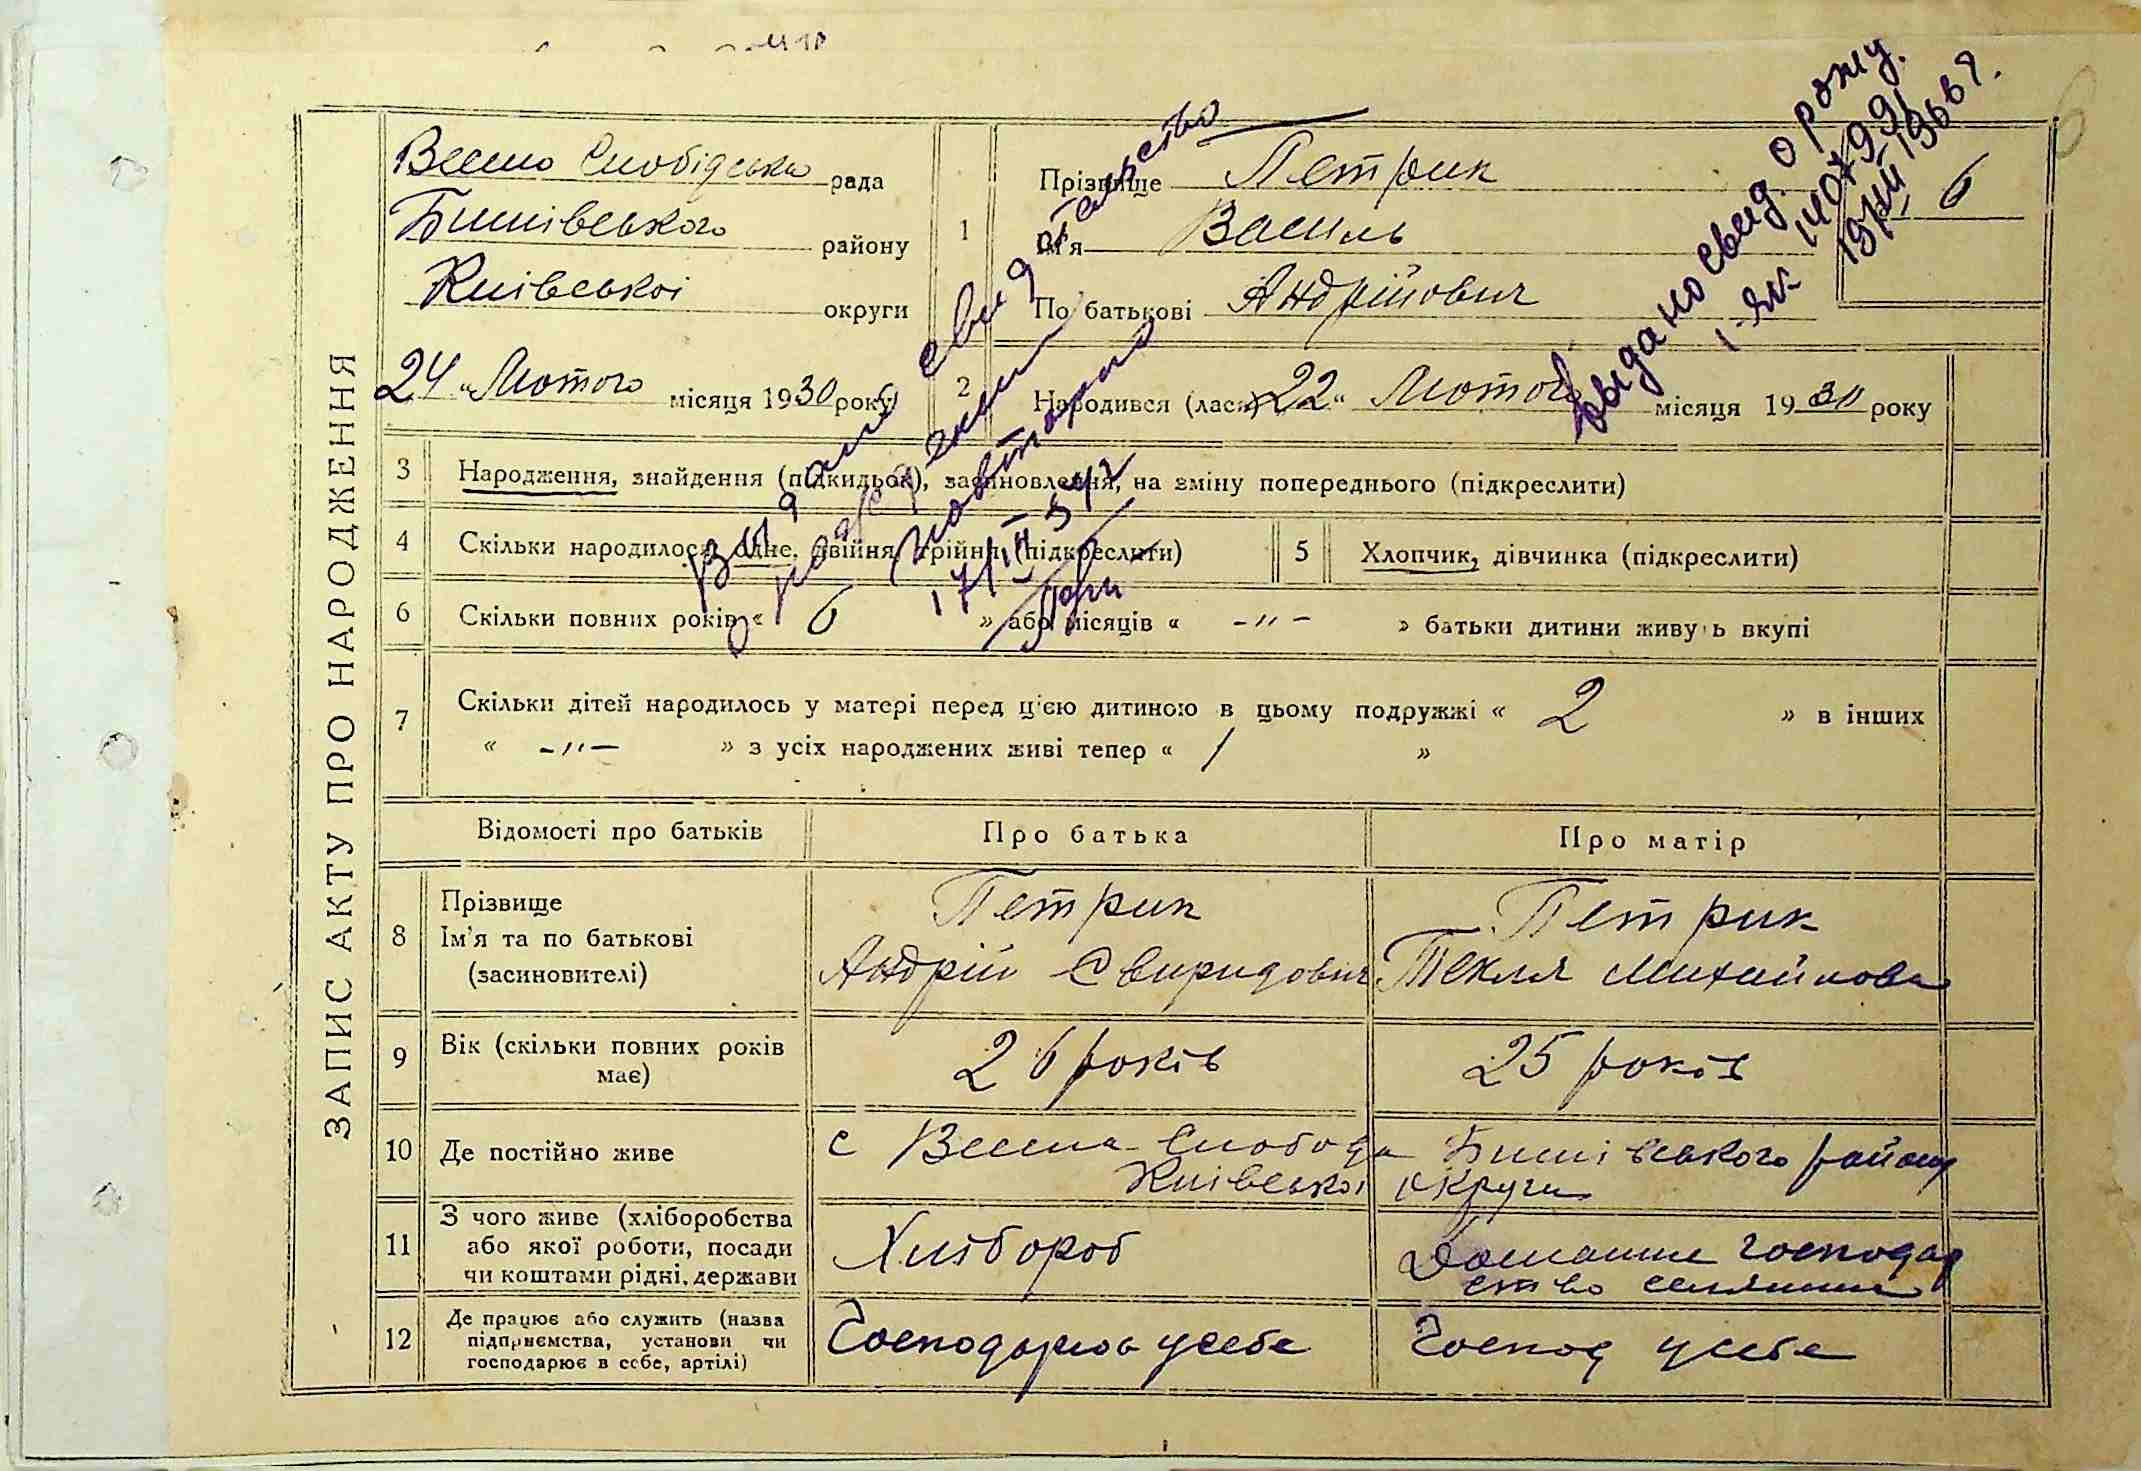 ЗАПИС АКТУ ПРО НАРОДЖЕННЯ
Весело Слобідська рада
Бишівського району
Київської округи
24 „ Лютого місяця 1930 року
1
Прізвище Петрик
Ім'я Василь
По батькові Андрійович
6
2
Народився (лася) „22“ Лютого місяця 1930 року
3 Народження, знайдення (підкидьок), засиновлення, на зміну попереднього (підкреслити)
4 Скільки народилося: одне, двійня, трійня (підкреслити)
5 Хлопчик, дівчинка (підкреслити)
6 Скільки повних років « 6 » або місяців « -〃- » батьки дитини живуть вкупі
7 Скільки дітей народилось у матері перед цією дитиною в цьому подружжі « 2 » в інших
« -〃- » з усіх народжених живі тепер « 1 »
Відомості про батьків Про батька Про матір
8 Прізвище
Ім'я та по батькові
(засиновителі)
Петрик
Андрій Свиридович
Петрик
Текля Михайлова
9 Вік (скільки повних років
має)
26 років
25 років
10 Де постійно живе
с Весела Слобода Бишівського району
Київської округи
11 З чого живе (хліборобства
або якої роботи, посади
чи коштами рідні, держави
Хлібороб
Домашнє господар
ство селянина
12 Де працює або служить (назва
підприємства, установи чи
господарює в себе, артілі)
Господарює у себе
Господ у себе
Выдано свидетельство
о рождении
повторно
17/II 54
Выдано свид. о рожд.
1-ЯК 140799
1966 г.